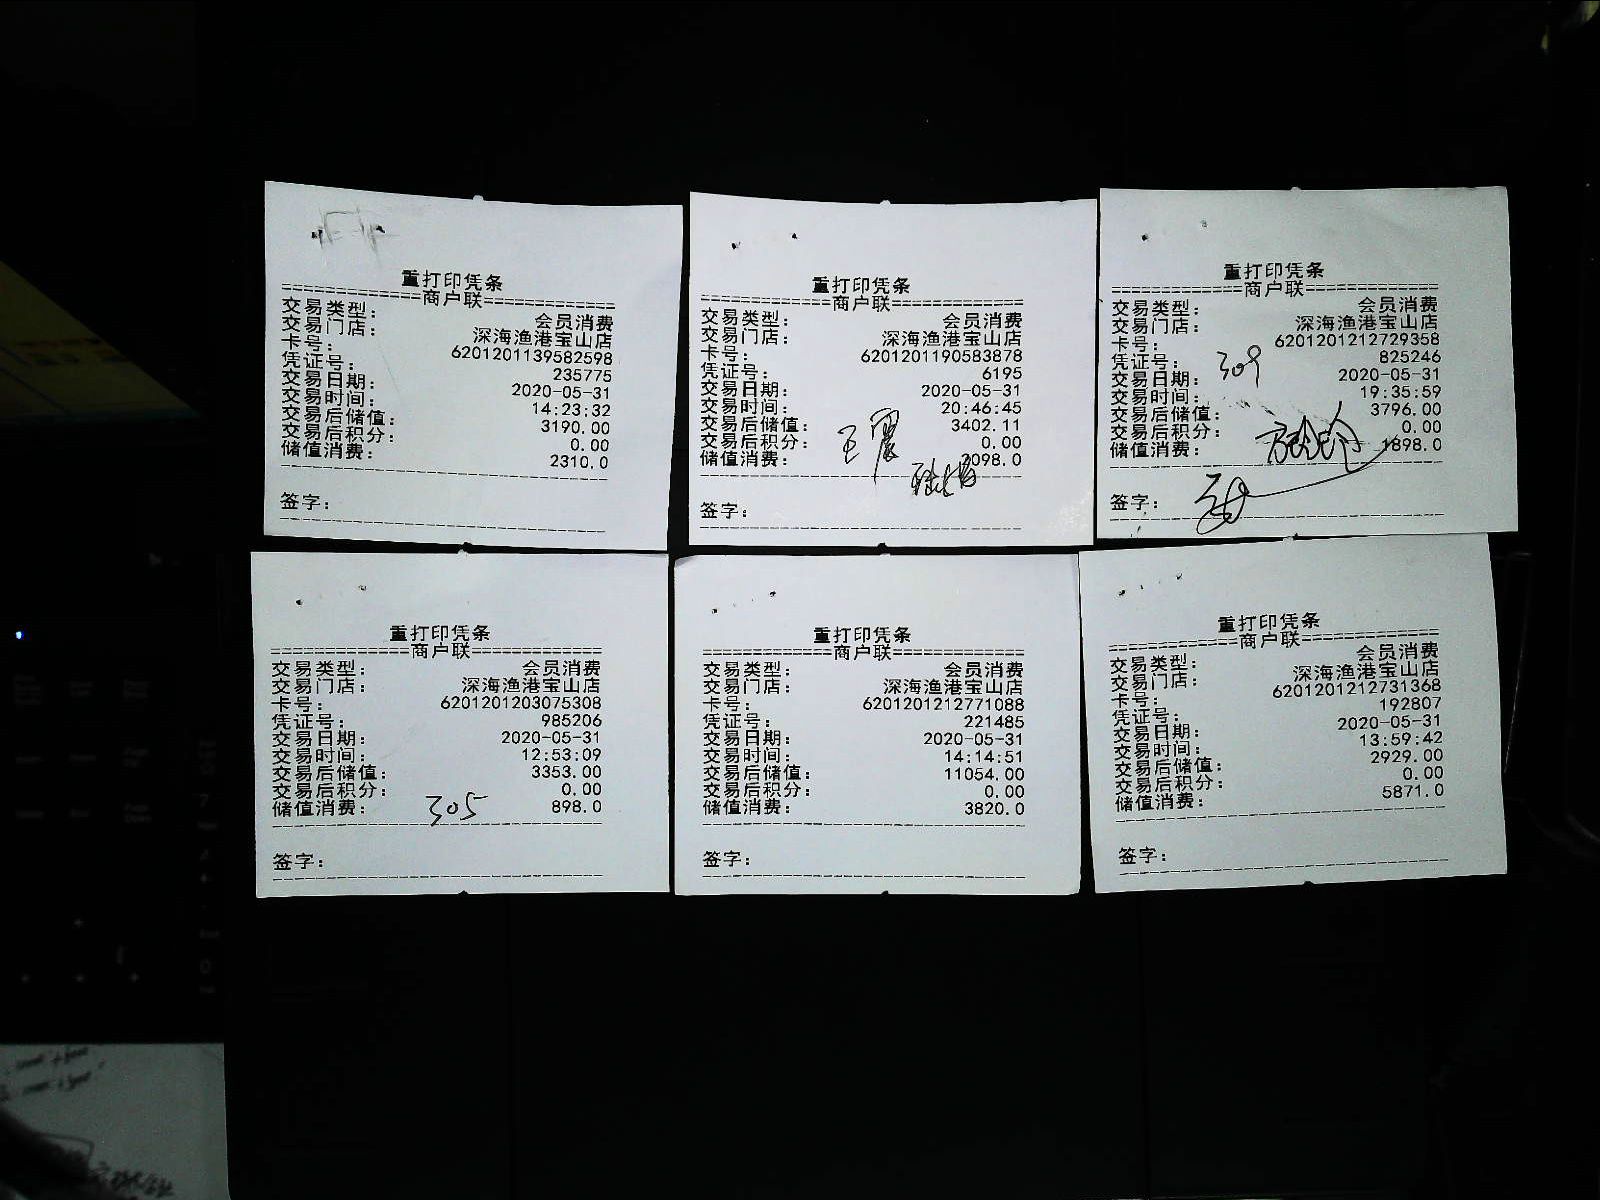 重打印凭条
================商户联================
交易类型： 会员消费
交易门店： 深海渔港宝山店
卡号： 6201201139582598
凭证号： 235775
交易日期： 2020-05-31
交易时间： 14:23:32
交易后储值： 3190.00
交易后积分： 0.00
储值消费： 2310.0
签字：
重打印凭条
================商户联================
交易类型： 会员消费
交易门店： 深海渔港宝山店
卡号： 6201201190583878
凭证号： 6195
交易日期： 2020-05-31
交易时间： 20:46:45
交易后储值： 3402.11
交易后积分： 0.00
储值消费： 2098.0
王震
签字：
重打印凭条
================商户联================
交易类型： 会员消费
交易门店： 深海渔港宝山店
卡号： 6201201212729358
凭证号： 825246
309
交易日期： 2020-05-31
交易时间： 19:35:59
交易后储值： 3796.00
交易后积分： 0.00
储值消费： 1898.0
签字：
重打印凭条
================商户联================
交易类型： 会员消费
交易门店： 深海渔港宝山店
卡号： 6201201203075308
凭证号： 985206
交易日期： 2020-05-31
交易时间： 12:53:09
交易后储值： 3353.00
交易后积分： 0.00
储值消费： 898.0
305
签字：
重打印凭条
================商户联================
交易类型： 会员消费
交易门店： 深海渔港宝山店
卡号： 6201201212771088
凭证号： 221485
交易日期： 2020-05-31
交易时间： 14:14:51
交易后储值： 11054.00
交易后积分： 0.00
储值消费： 3820.0
签字：
重打印凭条
================商户联================
交易类型： 会员消费
交易门店： 深海渔港宝山店
卡号： 6201201212731368
凭证号： 192807
交易日期： 2020-05-31
交易时间： 13:59:42
交易后储值： 2929.00
交易后积分： 0.00
储值消费： 5871.0
签字：